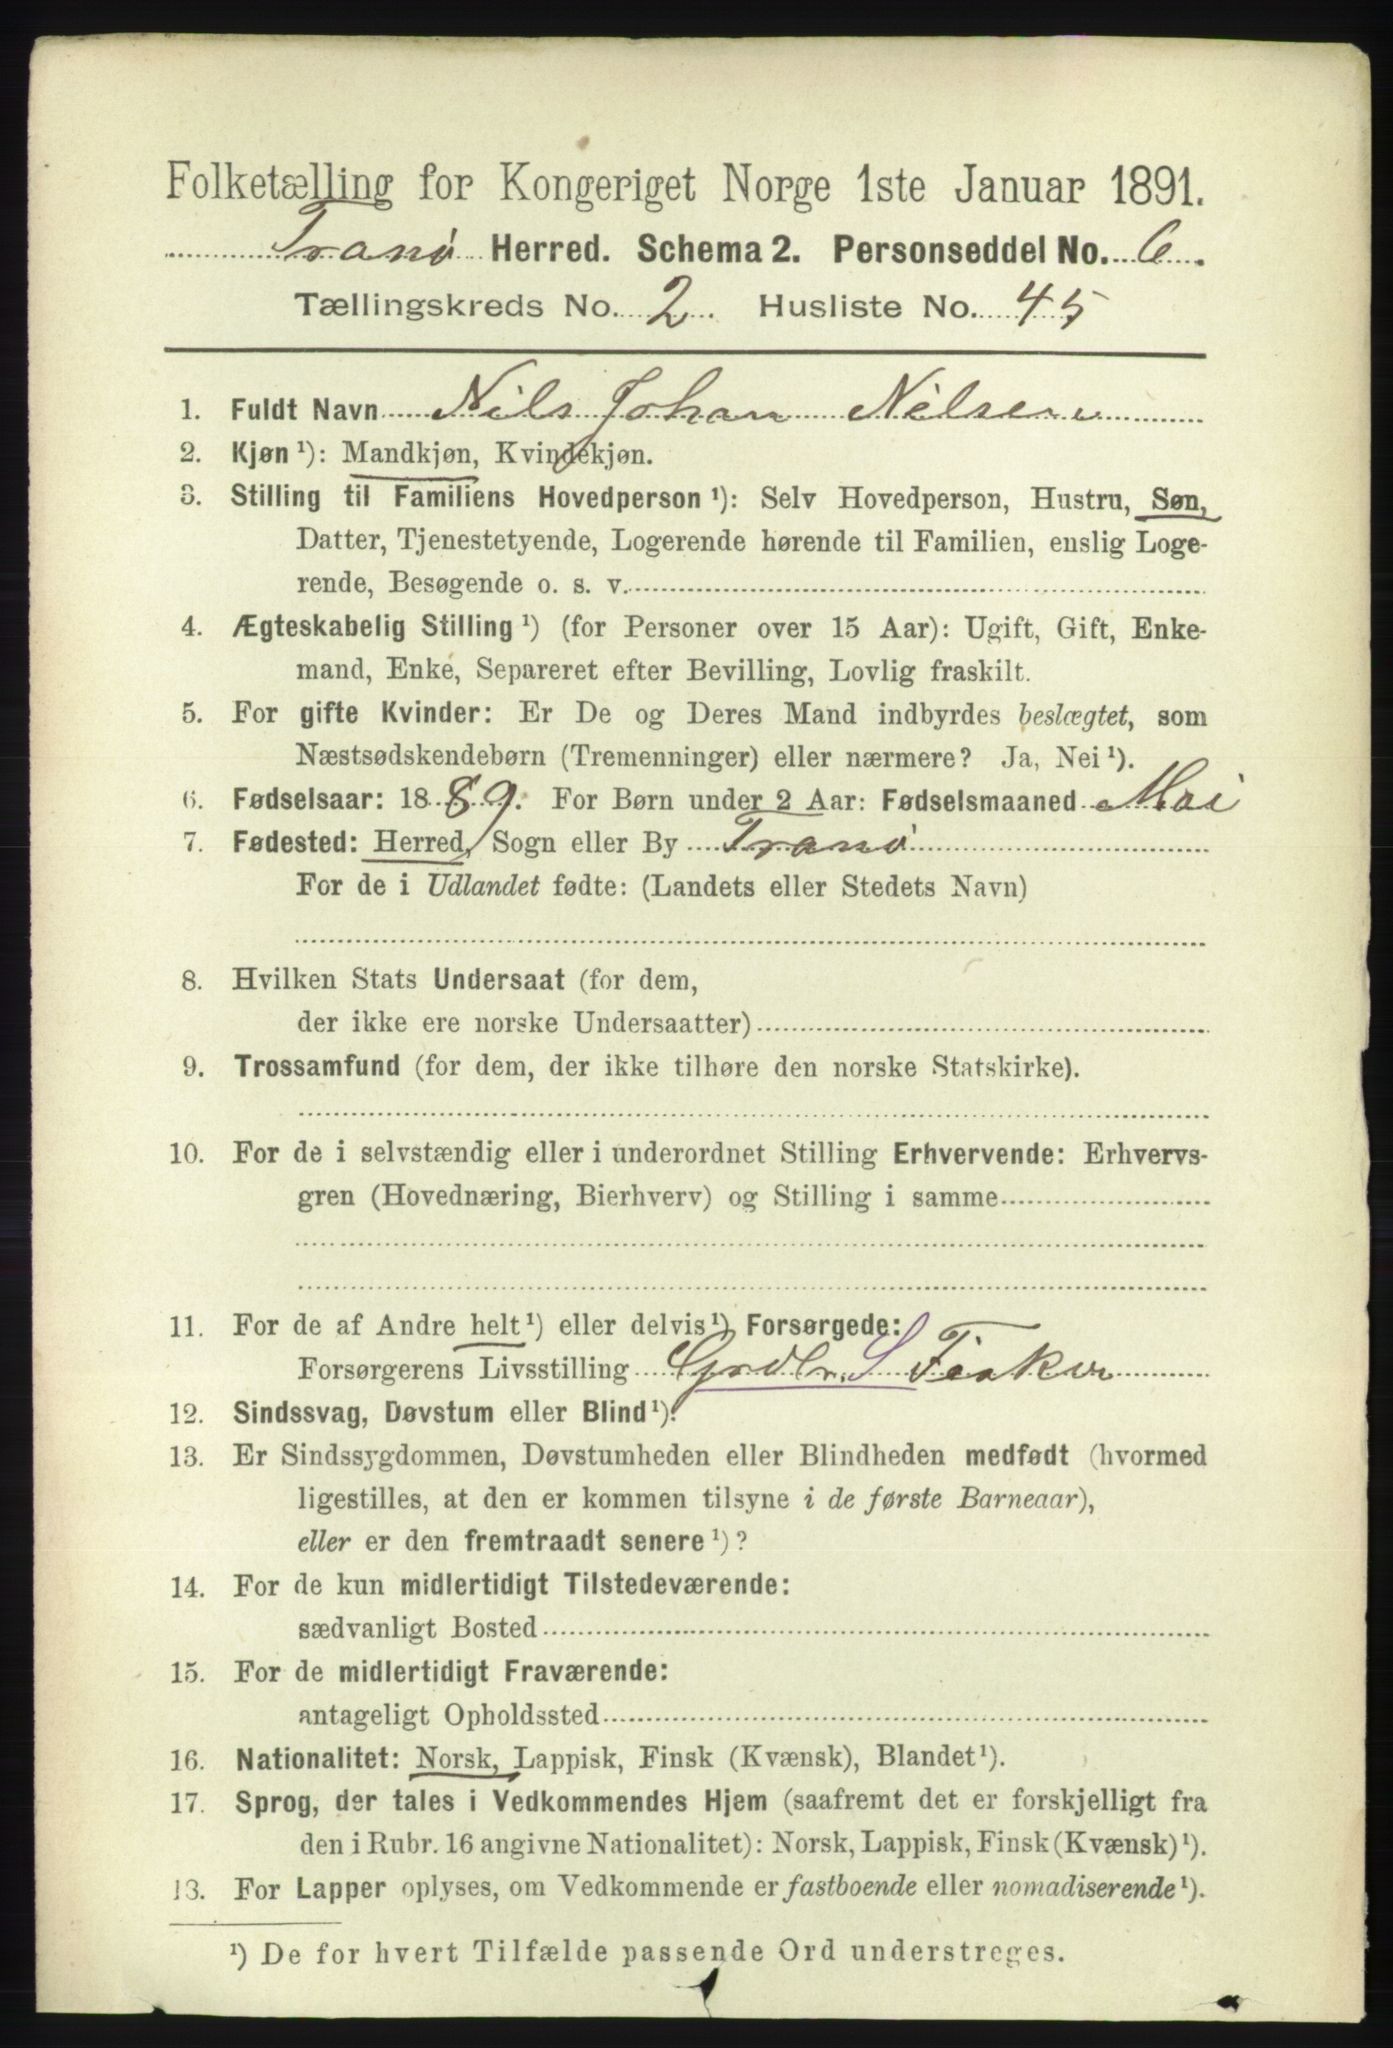 Folketælling for Kongeriget Norge 1ste Januar 1891.
Tranø Herred. Schema 2. Personseddel No. 6.
Tællingskreds No. 2. Husliste No. 45
1. Fuldt Navn Nils Johan Nilsen
2. Kjøn ¹): Mandkjøn, Kvindekjøn.
3. Stilling til Familiens Hovedperson ¹): Selv Hovedperson, Hustru, Søn,
Datter, Tjenestetyende, Logerende hørende til Familien, enslig Loge-
rende, Besøgende o. s. v.
4. Ægteskabelig Stilling ¹) (for Personer over 15 Aar): Ugift, Gift, Enke-
mand, Enke, Separeret efter Bevilling, Lovlig fraskilt.
5. For gifte Kvinder: Er De og Deres Mand indbyrdes beslægtet, som
Næstsødskendebørn (Tremenninger) eller nærmere? Ja, Nei ¹).
6. Fødselsaar: 1889. For Børn under 2 Aar: Fødselsmaaned Mai
7. Fødested: Herred, Sogn eller By Tranø
For de i Udlandet fødte: (Landets eller Stedets Navn)
8. Hvilken Stats Undersaat (for dem,
der ikke ere norske Undersaatter)
9. Trossamfund (for dem, der ikke tilhøre den norske Statskirke).
10. For de i selvstændig eller i underordnet Stilling Erhvervende: Erhvervs-
gren (Hovednæring, Bierhverv) og Stilling i samme
11. For de af Andre helt ¹) eller delvis ¹) Forsørgede:
Forsørgerens Livsstilling Grdbr. S Fisker
12. Sindssvag, Døvstum eller Blind ¹).
13. Er Sindssygdommen, Døvstumheden eller Blindheden medfødt (hvormed
ligestilles, at den er kommen tilsyne i de første Barneaar),
eller er den fremtraadt senere ¹)?
14. For de kun midlertidigt Tilstedeværende:
sædvanligt Bosted
15. For de midlertidigt Fraværende:
antageligt Opholdssted
16. Nationalitet: Norsk, Lappisk, Finsk (Kvænsk), Blandet ¹).
17. Sprog, der tales i Vedkommendes Hjem (saafremt det er forskjelligt fra
den i Rubr. 16 angivne Nationalitet): Norsk, Lappisk, Finsk (Kvænsk) ¹).
13. For Lapper oplyses, om Vedkommende er fastboende eller nomadiserende ¹).
¹) De for hvert Tilfælde passende Ord understreges.